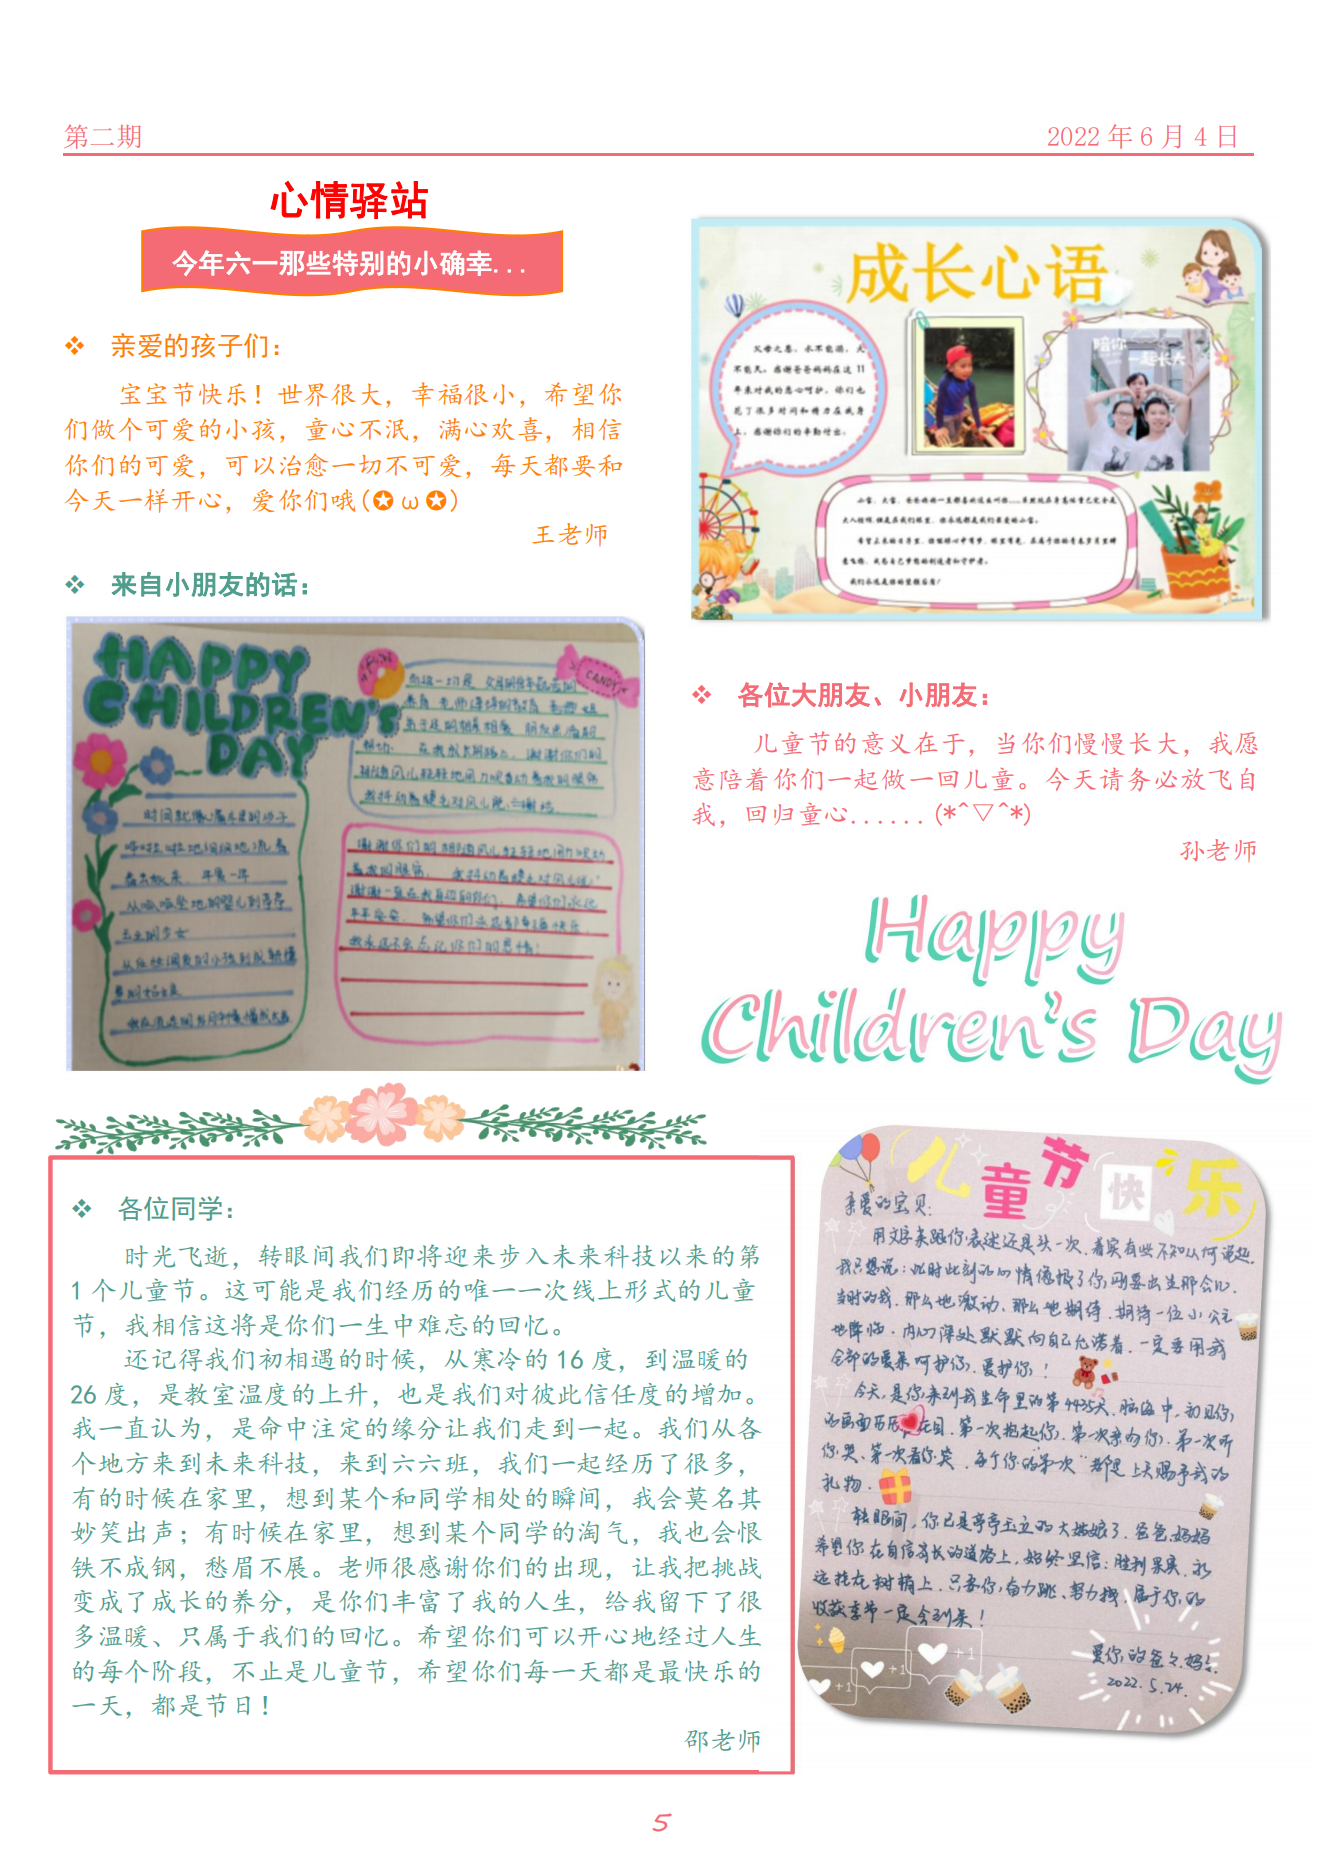 第二期
2022年6月4日
心情驿站
今年六一那些特别的小确幸...
❖ 亲爱的孩子们：
宝宝节快乐！世界很大，幸福很小，希望你
们做个可爱的小孩，童心不泯，满心欢喜，相信
你们的可爱，可以治愈一切不可爱，每天都要和
今天一样开心，爱你们哦(✪ω✪)
王老师
❖ 来自小朋友的话：
HAPPY
CHILDREN'S
DAY
CANDY
时间就像
从呱呱坠地的婴儿到亭亭
玉立的少女
成长心语
父母之恩，水不能溺，火
不能灭。感谢爸爸妈妈在这 11
年来对我的悉心呵护，你们也
花了很多时间和精力在我身
上，感谢你们的辛勤付出。
陪你
一起长大
我们永远是你的坚强后盾！
❖ 各位大朋友、小朋友：
儿童节的意义在于，当你们慢慢长大，我愿
意陪着你们一起做一回儿童。今天请务必放飞自
我，回归童心......(*^▽^*)
孙老师
Happy
Children's Day
❖ 各位同学：
时光飞逝，转眼间我们即将迎来步入未来科技以来的第
1 个儿童节。这可能是我们经历的唯一一次线上形式的儿童
节，我相信这将是你们一生中难忘的回忆。
还记得我们初相遇的时候，从寒冷的 16 度，到温暖的
26 度，是教室温度的上升，也是我们对彼此信任度的增加。
我一直认为，是命中注定的缘分让我们走到一起。我们从各
个地方来到未来科技，来到六六班，我们一起经历了很多，
有的时候在家里，想到某个和同学相处的瞬间，我会莫名其
妙笑出声；有时候在家里，想到某个同学的淘气，我也会恨
铁不成钢，愁眉不展。老师很感谢你们的出现，让我把挑战
变成了成长的养分，是你们丰富了我的人生，给我留下了很
多温暖、只属于我们的回忆。希望你们可以开心地经过人生
的每个阶段，不止是儿童节，希望你们每一天都是最快乐的
一天，都是节日！
邵老师
儿童节快乐
亲爱的宝贝：
用文字来跟你表述还是头一次，着实有些不知从何说起.
我只想说：此时此刻的心情像极了你刚要出生那会儿.
当时的我.那么地激动、那么地期待.期待一位小公主
地降临.内心深处默默向自己允诺着.一定要用我
全部的爱来呵护你，爱护你！
今天，是你来到我生命里的第4435天.脑海中.初见你，
的画面历历在目.第一次抱起你，第一次亲吻你，第一次听
你哭、第一次看你笑.每个你的"第一次"都是上天赐予我的
礼物.
转眼间，你已是亭亭玉立的大姑娘了.爸爸妈妈
希望你在自信成长的道路上，始终坚信：胜利果实.永
远挂在树梢上.只要你奋力跳、努力拽，属于你的
收获季节一定会到来！
爱你的爸爸.妈妈.
2022.5.24.
+1
+1
+1
5